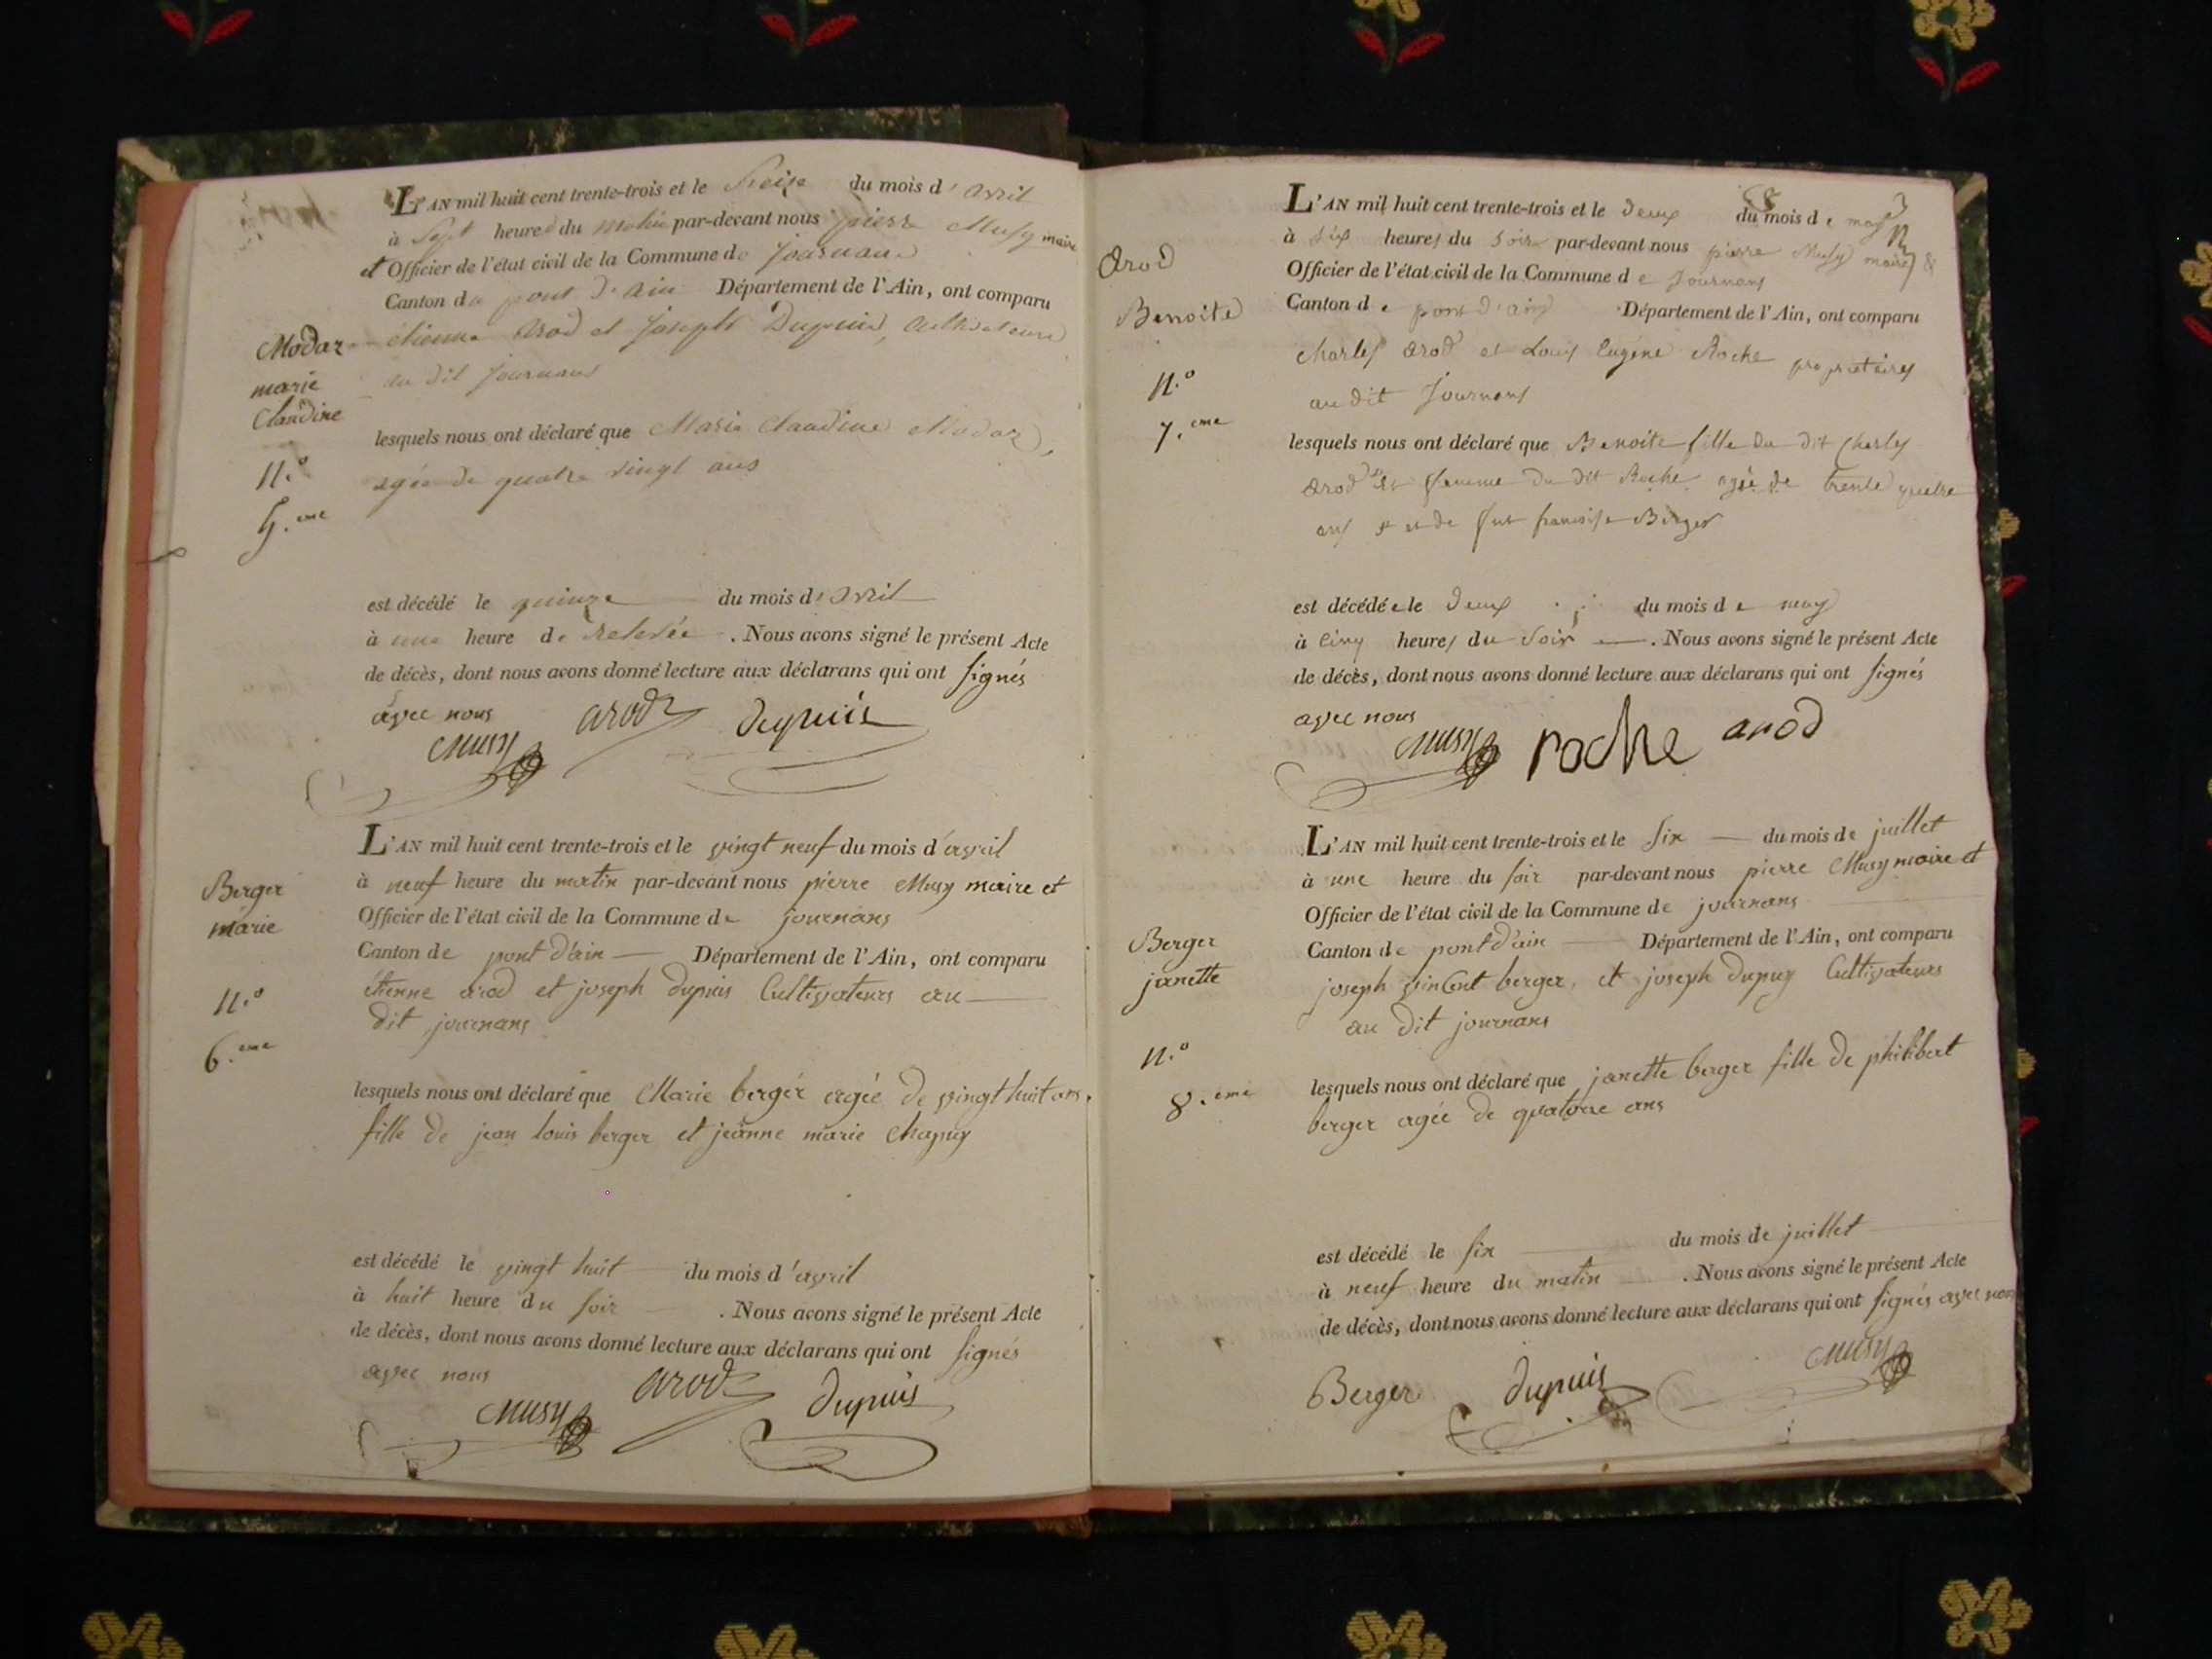 L'AN mil huit cent trente-trois et le Seize du mois d'avril
à Sept heures du matin par-devant nous pierre Musy maire
et Officier de l'état civil de la Commune de Journans
Canton de pont d'ain Département de l'Ain, ont comparu
étienne arod et Joseph Dupuis, Cultivateurs
au dit Journans
Modaz
marie
Claudine
N.º
5.eme
lesquels nous ont déclaré que Marie Claudine Modaz,
agée de quatre vingt ans
est décédé le quinze du mois d'avril
à une heure de relevée. Nous avons signé le présent Acte
de décès, dont nous avons donné lecture aux déclarans qui ont signés
avec nous
Musy arod Dupuis
L'AN mil huit cent trente-trois et le vingt neuf du mois d'avril
à neuf heure du matin par-devant nous pierre Musy maire et
Officier de l'état civil de la Commune de journans
Canton de pont d'ain Département de l'Ain, ont comparu
étienne arod et joseph dupuis Cultivateurs au
dit journans
Berger
marie
N.º
6.eme
lesquels nous ont déclaré que Marie berger agée de vingt huit ans.
fille de jean louis berger et jeanne marie Chapuy
est décédé le vingt huit du mois d'avril
à huit heure du soir. Nous avons signé le présent Acte
de décès, dont nous avons donné lecture aux déclarans qui ont signés
avec nous
Musy arod dupuis
L'AN mil huit cent trente-trois et le deux du mois de may
à six heures du soir par-devant nous pierre Musy maire &
Officier de l'état civil de la Commune de Journans
Canton de pont d'ain Département de l'Ain, ont comparu
Charles arod et Louis Eugène Roche propriétaires
au dit Journans
arod
Benoite
N.º
7.eme
lesquels nous ont déclaré que Benoite fille du dit Charles
arod et femme du dit Roche agée de trente quatre
ans et de fut francoise Berger
est décédée le deux du mois de may
à cinq heures du soir. Nous avons signé le présent Acte
de décès, dont nous avons donné lecture aux déclarans qui ont signés
avec nous
Musy roche arod
L'AN mil huit cent trente-trois et le six du mois de juillet
à une heure du soir par-devant nous pierre Musy maire et
Officier de l'état civil de la Commune de journans
Canton de pont d'ain Département de l'Ain, ont comparu
joseph vincent berger, et joseph dupuy Cultivateurs
au dit journans
Berger
janette
N.º
8.eme
lesquels nous ont déclaré que janette berger fille de philibert
berger agée de quatorze ans
est décédé le six du mois de juillet
à neuf heure du matin. Nous avons signé le présent Acte
de décès, dont nous avons donné lecture aux déclarans qui ont signés avec nous
Berger dupuis Musy